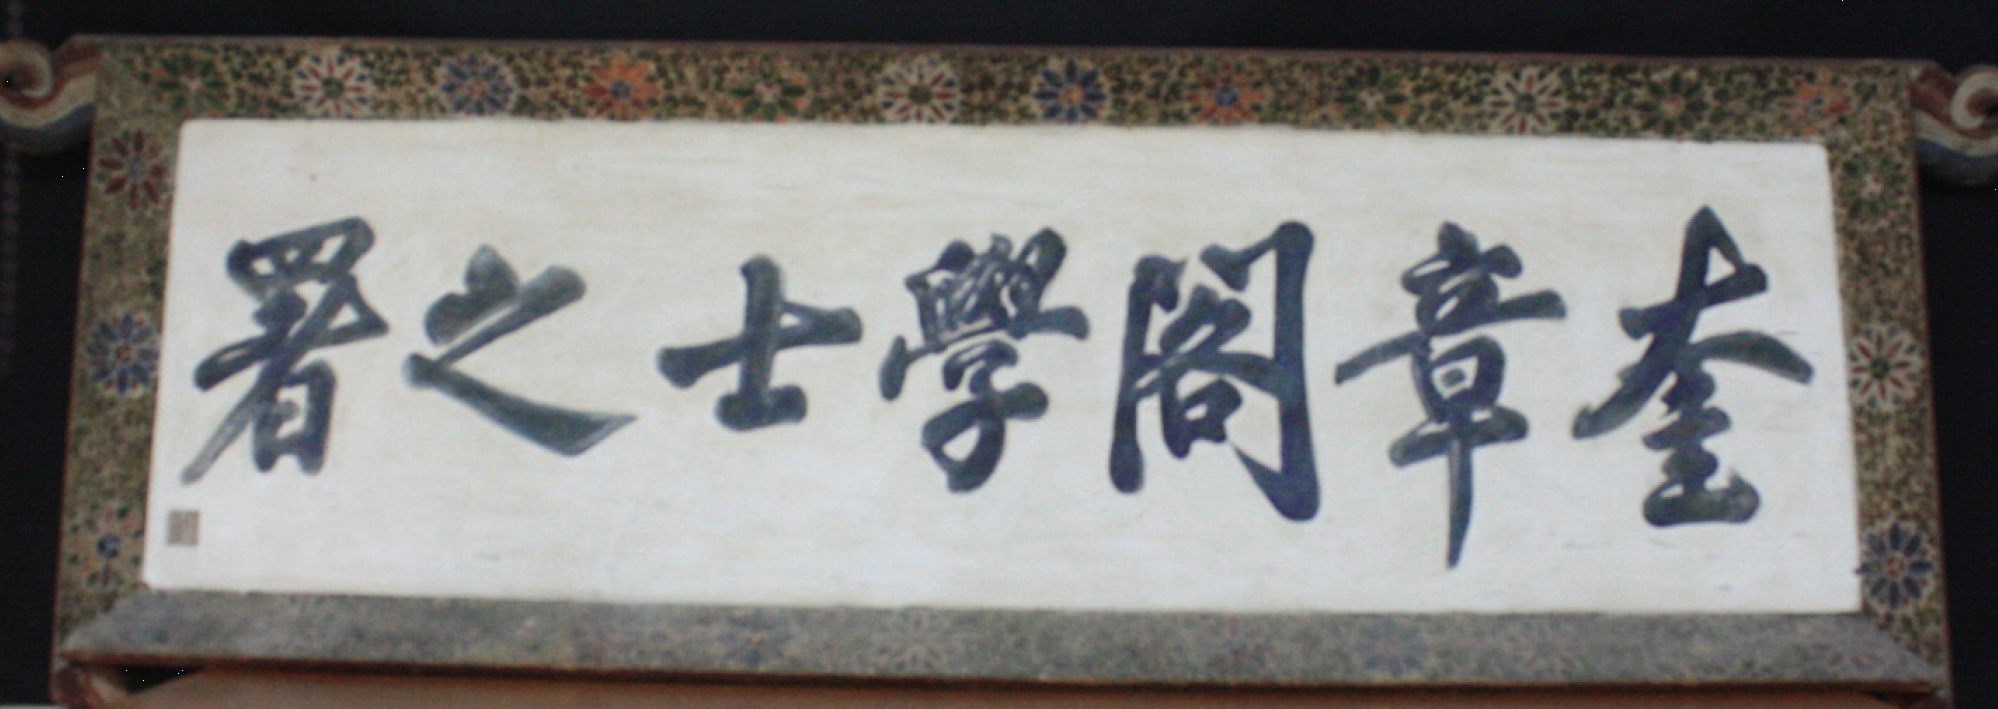 奎章閣學士之署